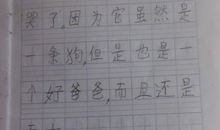 哭了,因为它虽然是
一条狗,但是也是一
个好爸爸,而且还是